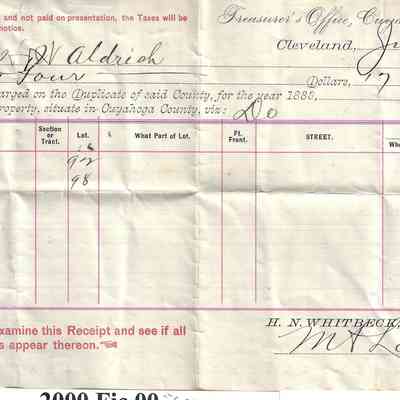 and not paid on presentation, the Taxes will be
notice.
Treasurer's Office, Cuya
Cleveland, Ju
W Aldrich
Four Dollars, 17
arged on the Duplicate of said County, for the year 1888,
roperty, situate in Cuyahoga County, viz: Do
Section or Tract. Lot. What Part of Lot. Ft. Front. STREET. Whe
92
98
xamine this Receipt and see if all
s appear thereon."
H. N. WHITBECK,